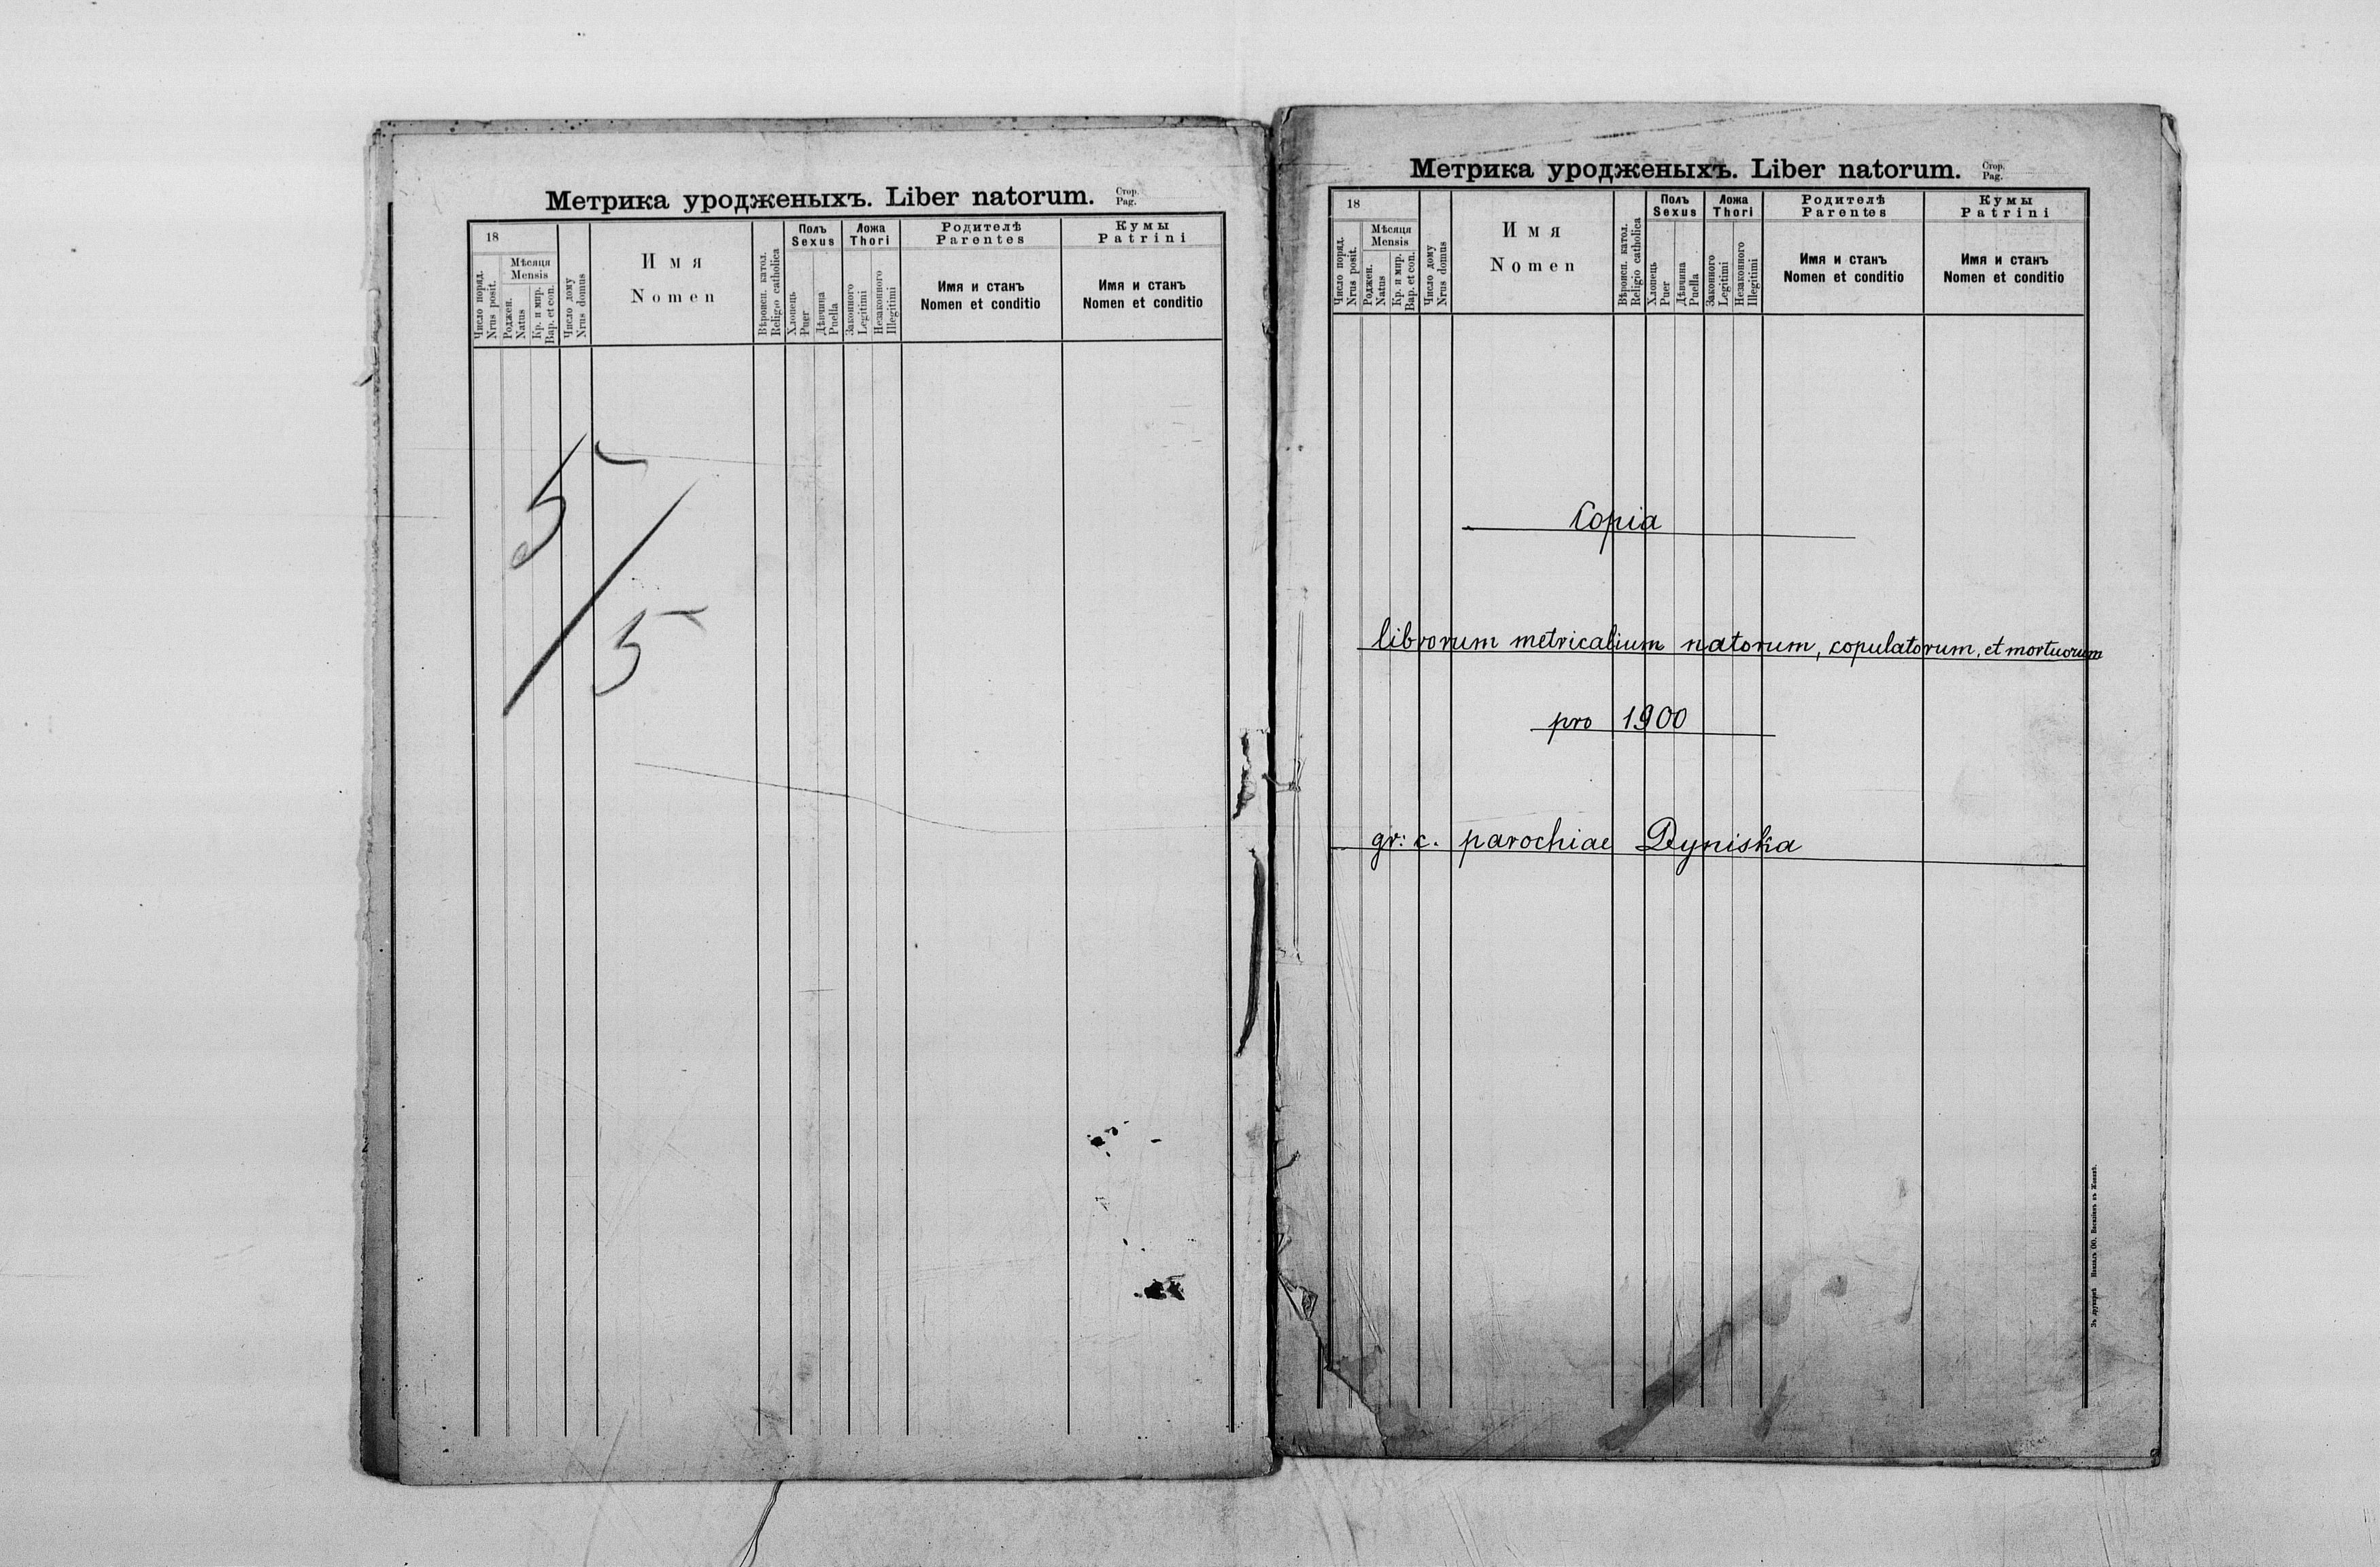 Метрика уродженыхъ. Liber natorum. Стор. Pag.
18
Число поряд. Nrus posit.
Мѣсяця Mensis
Роджен. Natus
Кр. и мир. Bap. et con.
Число дому Nrus domus
Имя
Nomen
Вѣроисп. катол. Religo catholica
Полъ Sexus
Хлопець Puer
Дѣвчина Puella
Ложа Thori
Законного Legitimi
Незаконного Illegitimi
Родителѣ Parentes
Имя и станъ Nomen et conditio
Кумы Patrini
Имя и станъ Nomen et conditio
5/5
Метрика уродженыхъ. Liber natorum. Стор. Pag.
18
Число поряд. Nrus posit.
Мѣсяця Mensis
Роджен. Natus
Кр. и мир. Bap. et con.
Число дому Nrus domus
Имя
Nomen
Вѣроисп. катол. Religio catholica
Полъ Sexus
Хлопець Puer
Дѣвчина Puella
Ложа Thori
Законного Legitimi
Незаконного Illegitimi
Родителѣ Parentes
Имя и станъ Nomen et conditio
Кумы Patrini
Имя и станъ Nomen et conditio
Copia
librorum metricalium natorum, copulatorum, et mortuorum
pro 1900
gr: c. parochiae Dyniska